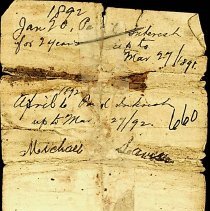 1892
Jan 20, Paid Interest
for 2 years up to
Mar 27/1891
1892
April 6 Paid Interest
up to Mar 27/92 660
Michael